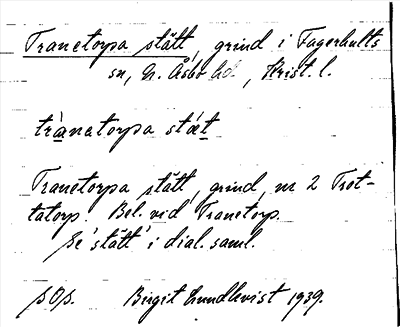 Tranetorpa stätt, grind i Fagerhults
sn, N. Åsbo hd., Krist. l.
trànatorpa stǽt
Tranetorpa stätt, grind, nr 2 Trot-
tatorp. Bel. vid Tranetorp.
Se 'stätt' i dial. saml.
Birgit Lundkvist 1939.